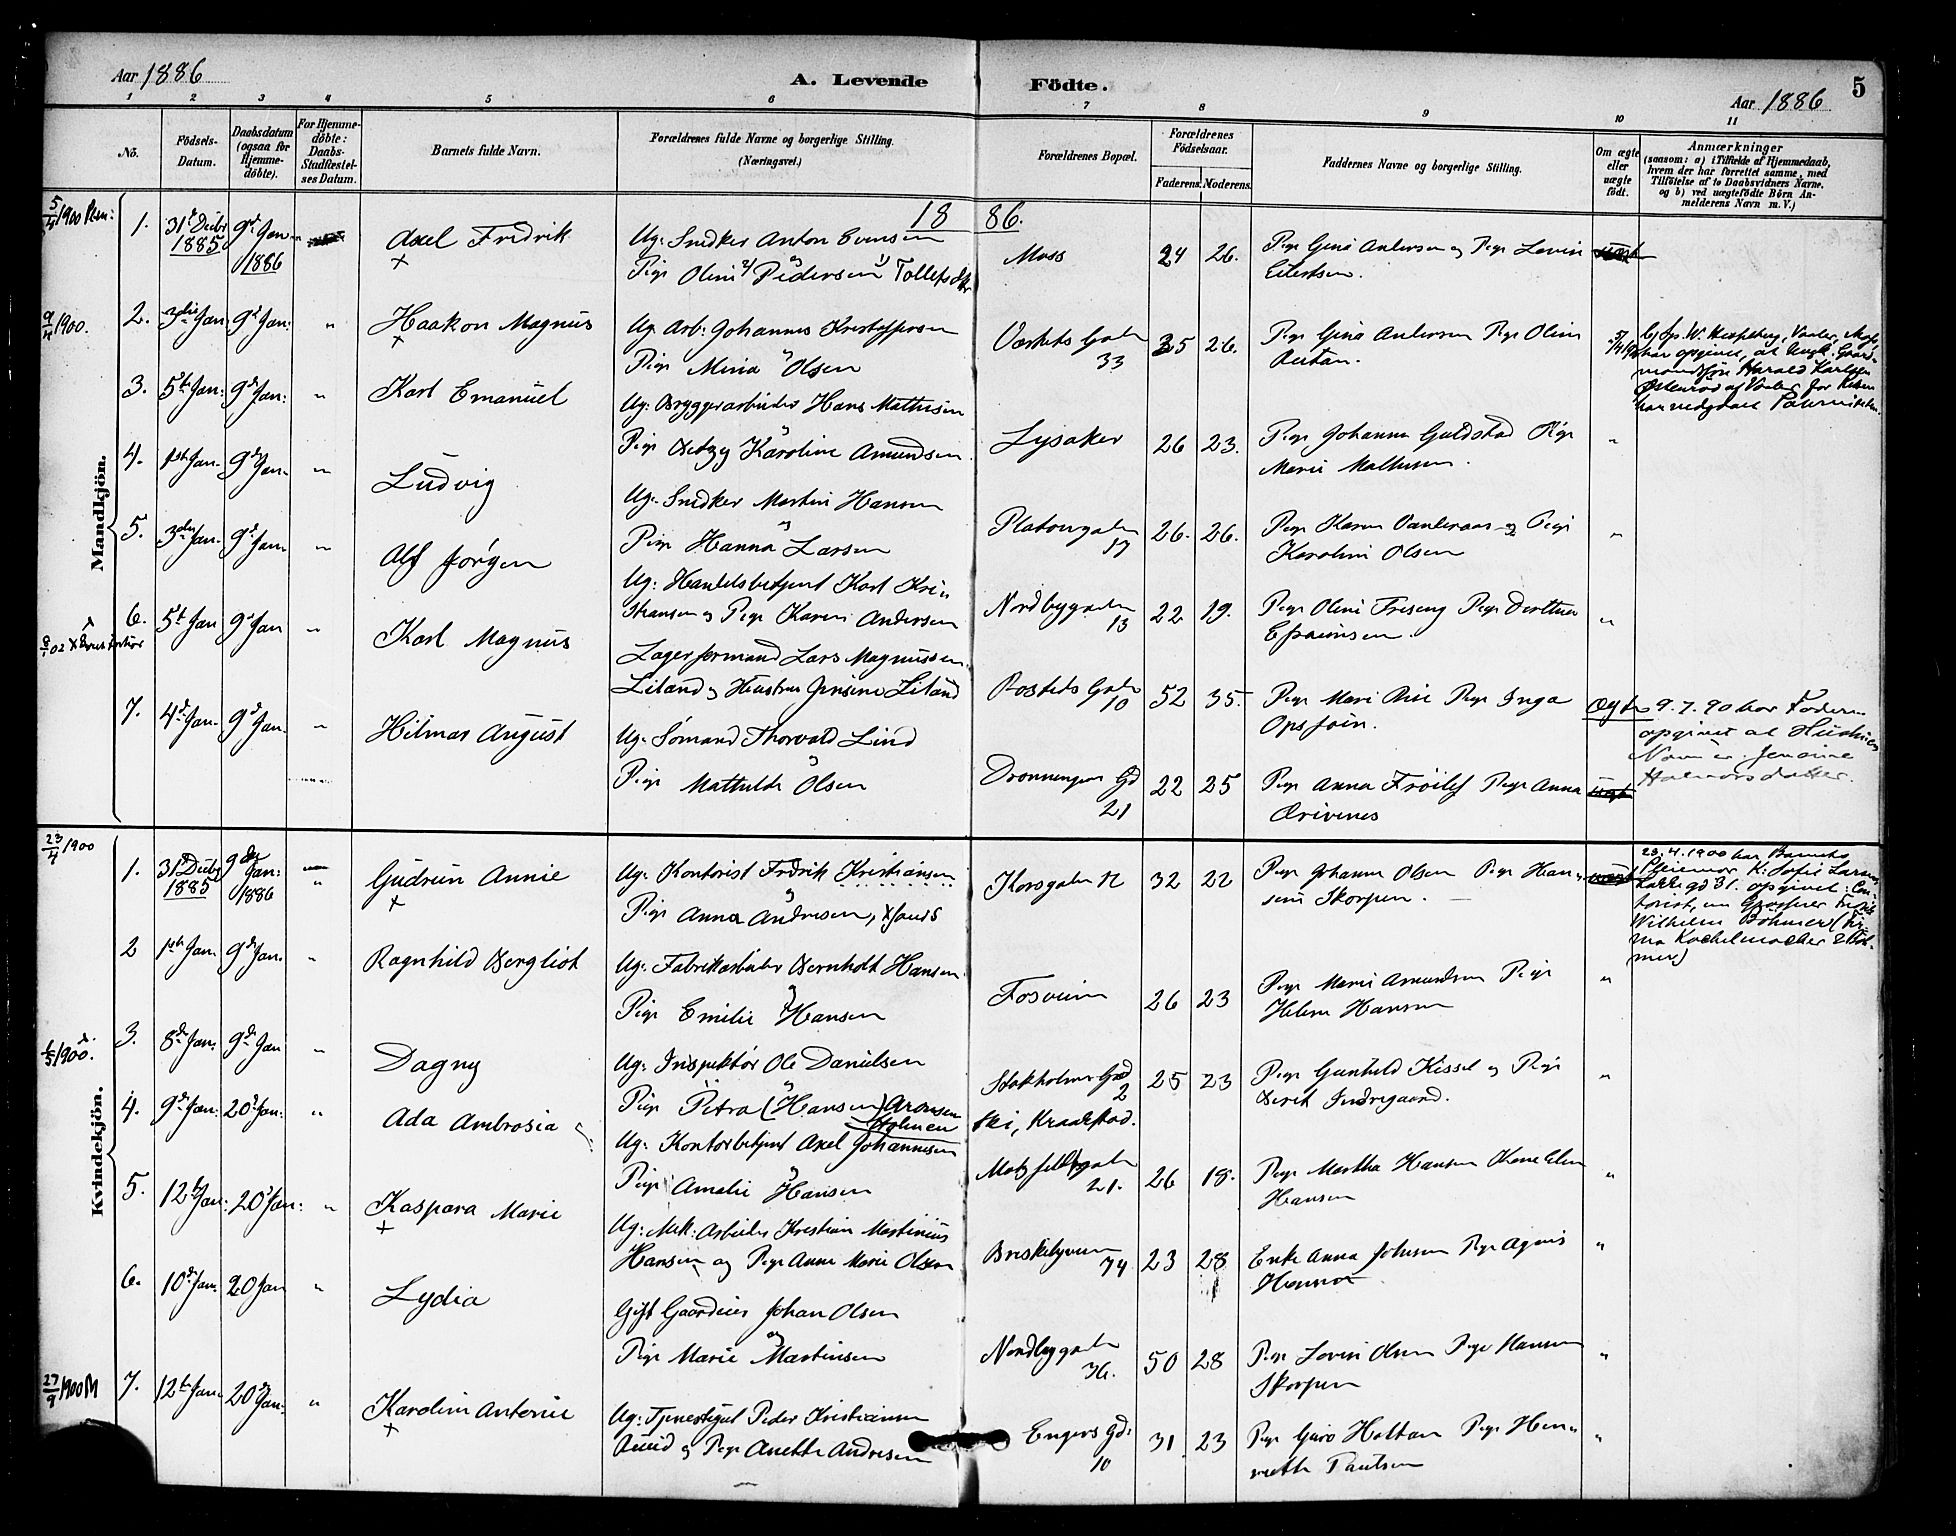 Aar 1886
A. Levende Födte.
5
Aar 1886
1 2 3 4 5 6 7 8 9 10 11
No.
Födsels-
Datum.
Daabsdatum
(ogsaa for
Hjemme-
döbte).
For Hjemme-
döbte:
Daabs-
Stadfæstel-
ses Datum.
Barnets fulde Navn.
Forældrenes fulde Navne og borgerlige Stilling.
(Næringsvei.)
Forældrenes Bopæl.
Forældrenes
Födselsaar.
Faderens. Moderens.
Faddernes Navne og borgerlige Stilling.
Om ægte
eller
uægte
födt.
Anmærkninger
(saasom: a) i Tilfælde af Hjemmedaab,
hvem der har forrettet samme, med
Tilföielse af to Daabsvidners Navne.
og b) ved uægtefödte Börn An-
melderens Navn m. V.)
18 86.
Mandkjön.
5/4 1900
1. 31 Decbr 1885 9d Jan 1886
Axel Fredrik
Ug: Snedker Anton Evensen
Pige Oline Pedersen Tollefsdtr
Moss
24 26.
Pige Gina Andersen og Pige Lovise
Eilertsen.
9/4 1900.
2. 3die Jan 9d Jan: "
Haakon Magnus
Ug. Arb: Johannes Kristoffersen
Pige Mina Olsen
Værksts Gaden
33
35 26.
Pige Gina Andersen Pige Oline
har opgivet, at
Harald Karlsen
af Vaaler
3. 5te Jan: 9d Jan: "
Karl Emanuel
Ug: Bryggeriarbeider Hans Mathisen
Pige Betzy Karoline Amundsen
Lysaker
26 23.
Pige Johanne Guldstad Pige
Marie Mathisen.
"
4. 1ste Jan. 9d Jan. "
Ludvig
Ug: Snedker Martin Hansen
Pige Hanna Larsen
Platousgaden
17
26. 26.
Pige Karen og Pige
Karoline Olsen
"
5. 3die Jan. 9d Jan. "
Alf Jörgen
Ug: Handelsbetjent Karl Kri-
stiansen og Pige Karen Andersen
Nordbygaden
13
22 19.
Pige Oline Pige Dorthea
Efraimsen.
"
6. 5te Jan 9d Jan "
Karl Magnus
Lagerformand Lars Magnussen
Liland og Hustru Jensine Liland
Rosteds Gade
10
52 35.
Pige Marie Pige Inga
Opsjøin.
Ægte
9.7.90 har Faderen
opgivet at Hustruens
Navn er Jensine
Halvorsdatter.
7. 4d Jan. 9d Jan. "
Hilmar August
Ug: Sömand Thorvald Lind
Pige Mathilde Olsen
Dronningens Gd
21
22 25
Pige Anna Pige Anna
Kvindekjön.
23/4 1900
1. 31 Decbr 1885 9de Jan: 1886 "
Gudrun Annie
Ug: Kontorist Fredrik Kristiansen
Pige Anna Andresen,
Korsgaden
32 22
Pige Johanne Olsen Pige Han-
sine Skorpen.
23.4.1900 har Barnets
Pleiemor K. Sofie Larsen
opgivet: Con-
torist, nu Grosserer
Wilhelm Böhmer (Fir-
ma Kachelmacher & Böh-
mer)
2 1ste Jan. 9d Jan. "
Ragnhild Bergliot
Ug: Fabrikarbeider Bernhodt Hansen
Pige Emilie Hansen
Fosveien
26 23
Pige Marie Amundsen Pige
Helene Hansen
"
1/5 1900.
3. 8d Jan. 9d Jan "
Dagny
Ug: Inspektör Ole Danielsen
Pige Petra (Hansen) Aronsen
Holmen
Stokholms Gad
2
Ski, Kraakstad.
25 23
Pige Gunhild Kissel og Pige
Berit Indregaard.
"
4. 9d Jan. 20d Jan: "
Ada Ambrosia
Ug: Kontorbetjent Axel Johannesen
Pige Amalie Hansen
Motzfeldtsgaden
21.
26 18.
Pige Martha Hansen
Hansen
"
5. 12te Jan. 20d Jan: "
Kaspara Marie
Ug: Mek: Arbeider Kristian Martinius
Hansen og Pige Anne Marie Olsen
Briskebyveien
74
23 28
Enke Anna Johnsen Pige Agnes
"
6. 10d Jan. 20 Jan "
Lydia
Gift Gaardeier Johan Olsen
Pige Marie Martinsen
Nordbygaden
36.
50 28
Pige Lovise Olsen Pige Hansine
Skorpen
"
27/9 1900
7. 12te Jan. 20d Jan. "
Karoline Antonie
Ug: Tjenestegut Peder Kristiansen
og Pige Anette Andresen
Engers Gd:
10
31 23
Pige Guro Holtan Pige Hen-
riette Paulsen
"